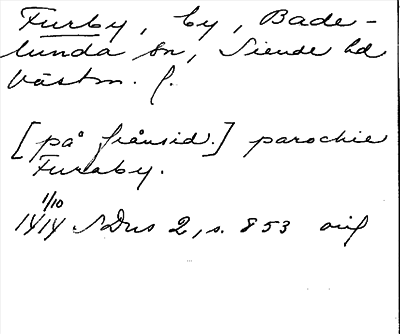 Furby, by, Bade-
lunda sn, Siende hd
Västm. l.
[på frånsid.] parochie
Furaby.
1/10
1414 SDns 2, s. 853 orig